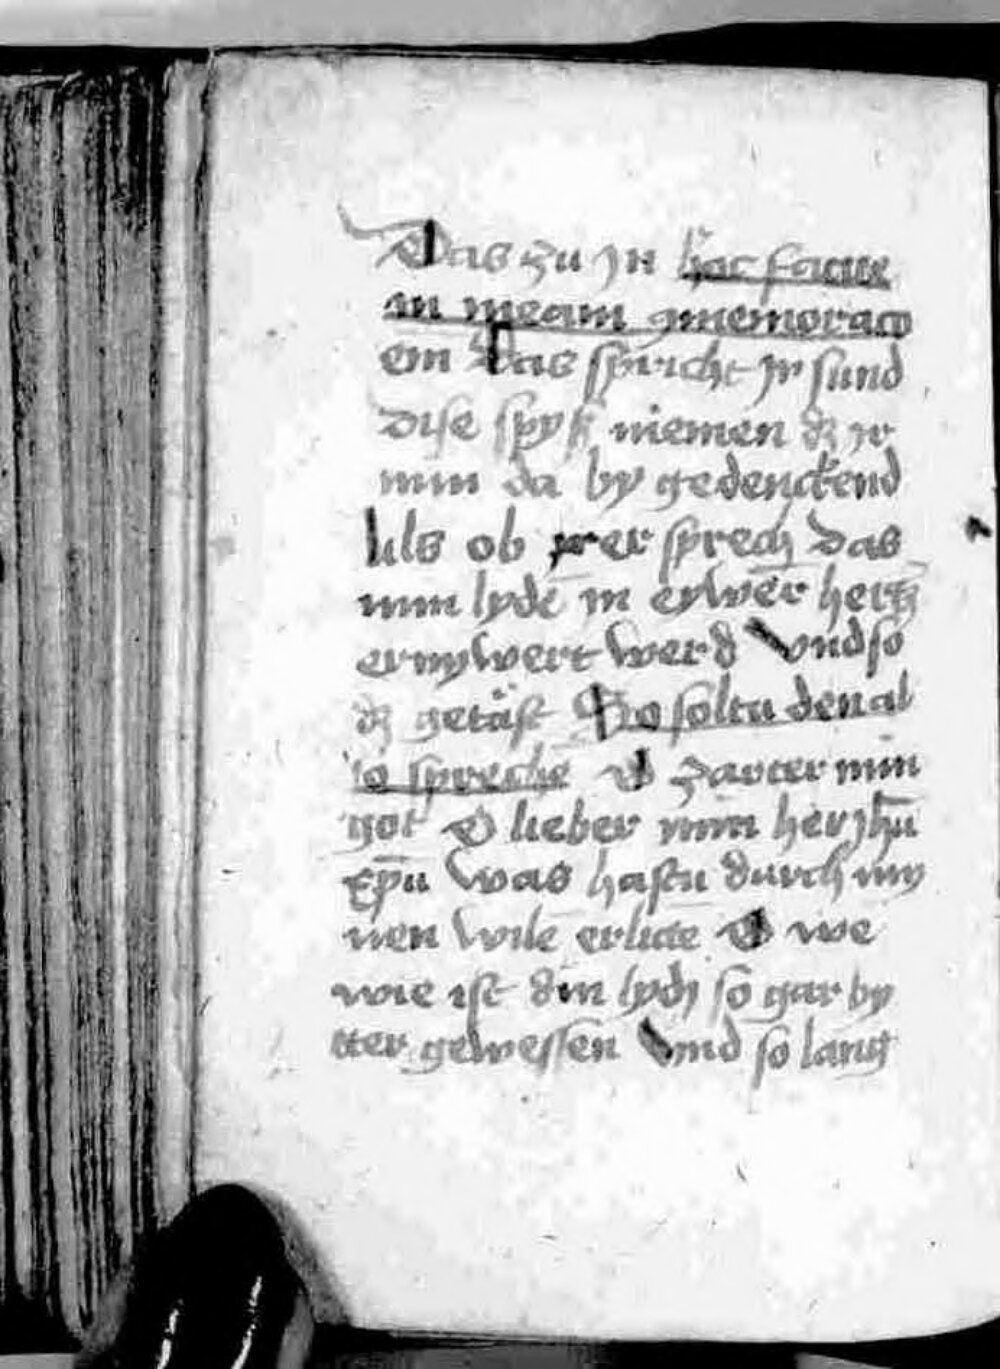 Das zu jn hoc facite
in meam 9memoracō
em Das spricht jr sünd
dise spyß niemen dz jr
min da by gedenckend
Als ob er sprech das
min lydē in eylwer hertz
ernywert werd Vnd so
dz getüst So soltu den al
so spreche O zarter min
got O lieber min her jhū
xp̄u was hastu durch my
nen wilē erlitē O we
wie ist din lydē so gar by
tter gewessen Vnd so lang